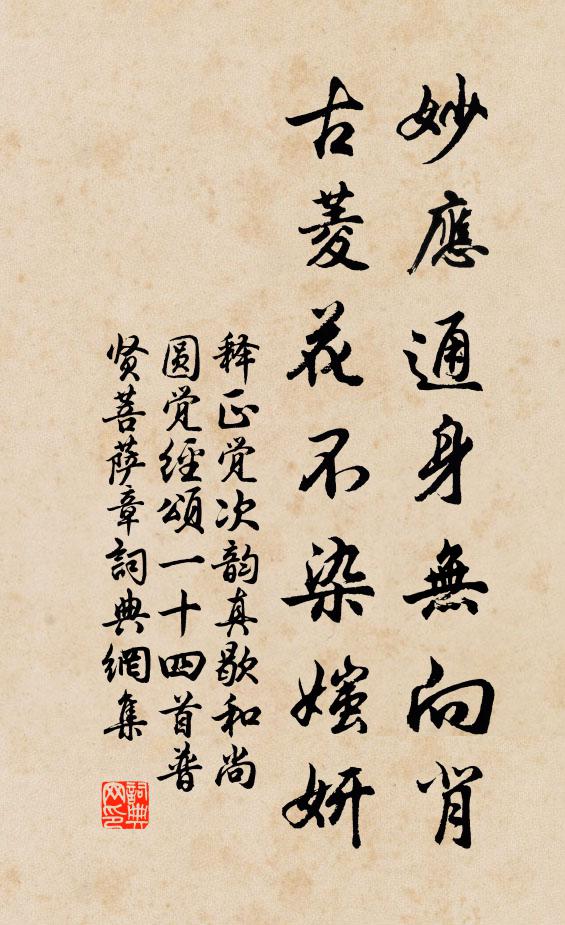 妙應通身無向背
古菱花不染媸妍
释正觉次韵真歇和尚
圆觉经頌一十四首普
贤菩萨章詞典網集
詞典
网印